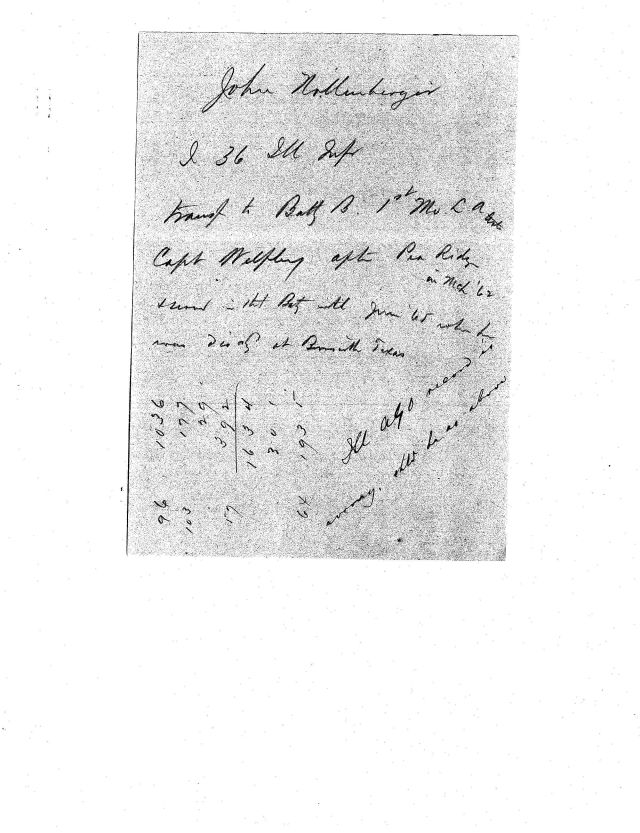 John Nollenberger
I 36 Ill Infr
transf to Batty B. 1st Mo L A
Capt Welfley after Pea Ridge
in Mch '62
served in tht Baty until June '65 when he
was dischg at Texas
Ill AGO record is
. shld be as above
1036
177
29
392
1634
301
1931
96
103
17
64